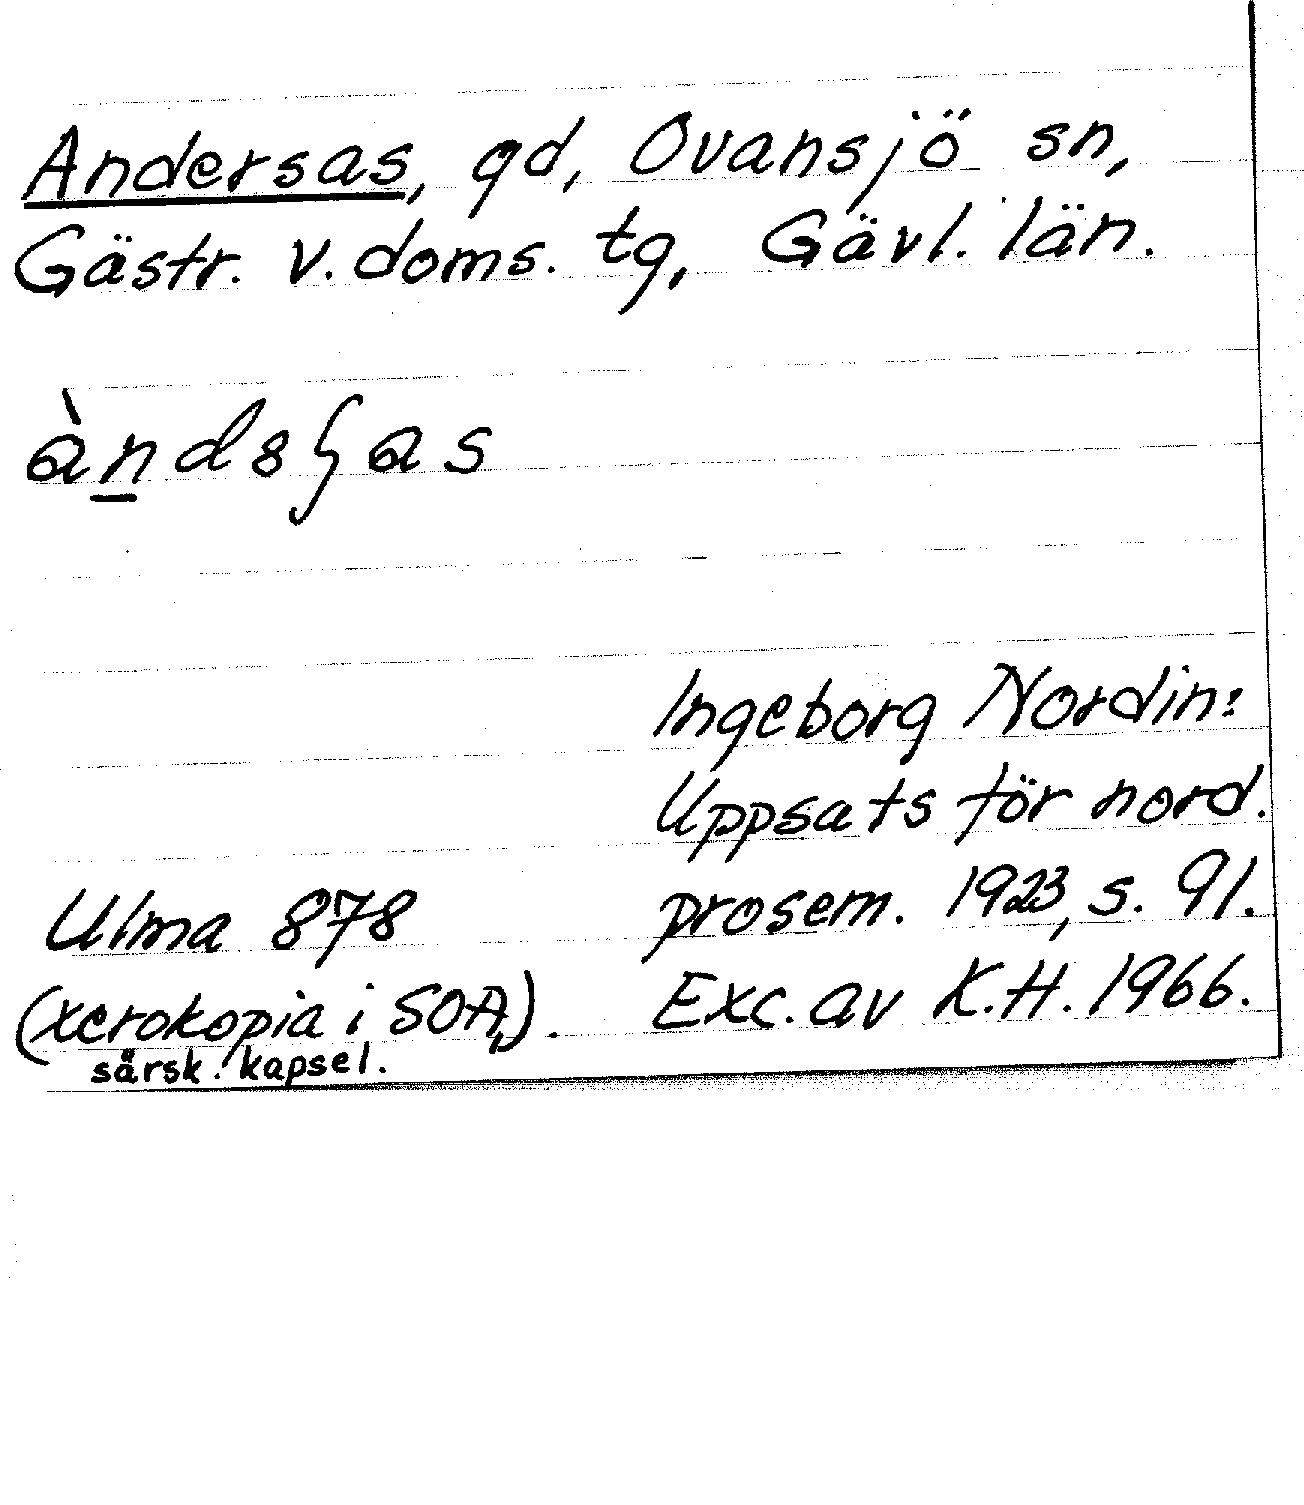 Andersas, gd, Ovansjö sn,
Gästr. v. doms. tg, Gävl. län.
Ingeborg Nordin:
Uppsats för nord.
prosem. 1923, s. 91.
Exc. av K.H. 1966.
Ulma 878
(xerokopia i SOA,).
särsk. kapsel.